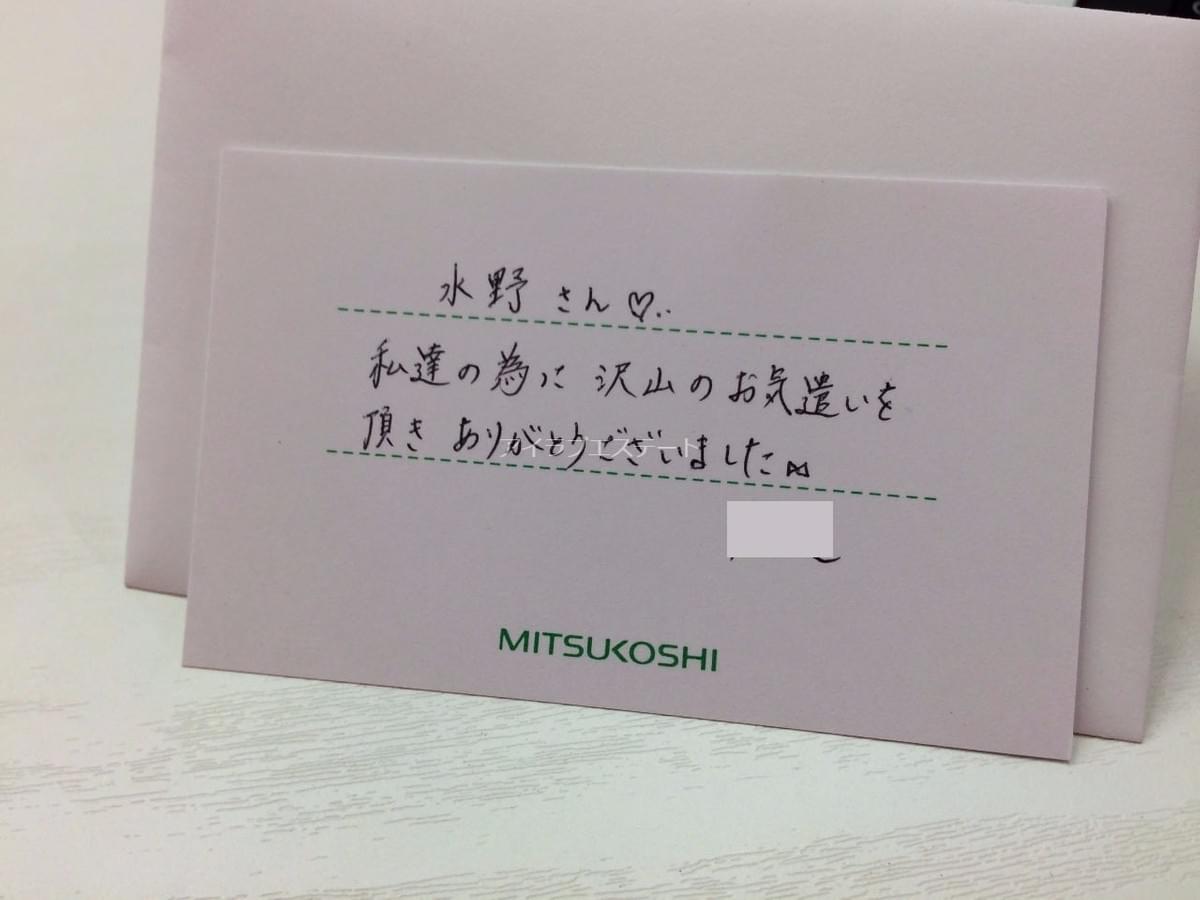 水野さん♡..
私達の為に沢山のお気遣いを
頂きありがとうございました⋈
アイラブエステート
MITSUKOSHI